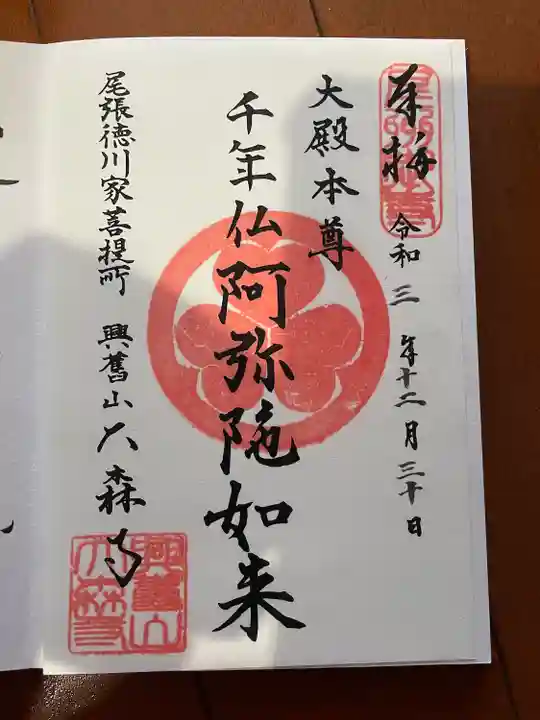 奉拝 令和三年十二月三十日
大殿本尊
千年仏阿弥陀如来
尾張徳川家菩提所 興舊山大森寺